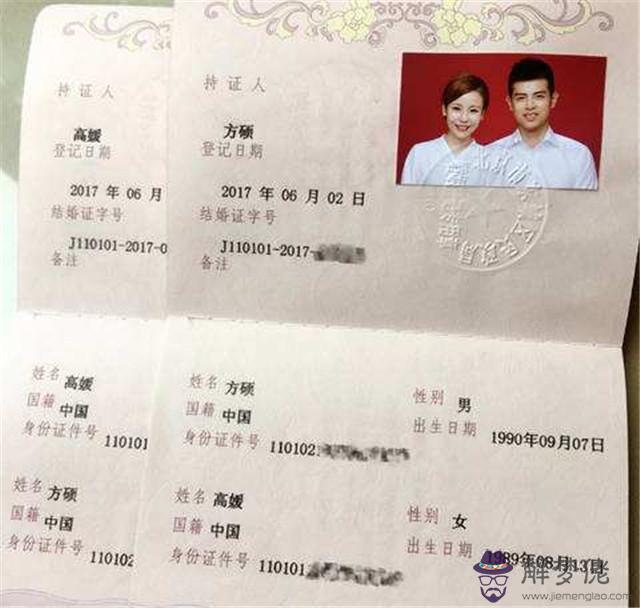 持证人
高媛
登记日期
2017 年 06 月
结婚证字号
J110101-2017-0
备注
持证人
方硕
登记日期
2017 年 06 月 02 日
结婚证字号
J110101-2017-
备注
姓名 高媛
国籍 中国
身份证件号 110101
姓名 方硕
国籍 中国
身份证件号 110102
姓名 方硕
性别 男
国籍 中国
出生日期 1990年09月07日
身份证件号 110102
姓名 高媛
性别 女
国籍 中国
出生日期 1989年08月13日
身份证件号 110101
解梦佬
www.jiemenglao.com